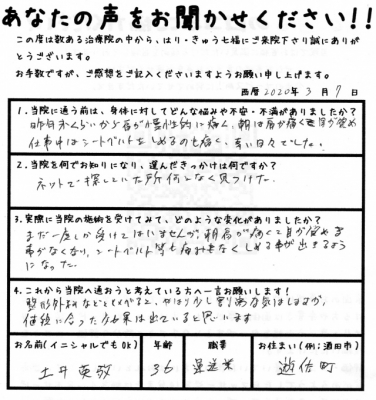 あなたの声をお聞かせください!!
この度は数ある治療院の中から、はり・きゅう七福にご来院下さり誠にありが
とうございます。
お手数ですが、ご感想をご記入くださいますようお願い申し上げます。
西暦2020年3月7日
1.当院に通う前は、身体に対してどんな悩みや不安・不満がありましたか?
昨年末くらいから肩が慢性的に痛く、朝は肩が痛くて目が覚め
仕事中はシートベルトをしめるのも痛く、辛い日々でした。
2.当院を何でお知りになり、選んだきっかけは何ですか?
ネットで探していた所何となく見つけた。
3.実際に当院の施術を受けてみて、どのような変化がありましたか?
まだ一度しか受けてはいませんが、朝肩が痛くて目が覚める
事がなくなり、シートベルト等も痛みもなくしめる事が出きるよう
になった。
4.これから当院へ通おうと考えている方へ一言お願いします!
整形外科などとくらべると、やはり少し割高な気はしますが、
値段に合った効果は出ていると思います
お名前(イニシャルでもOK)
年齢
職業
お住まい(例:酒田市)
土井英敬
36
運送業
遊佐町